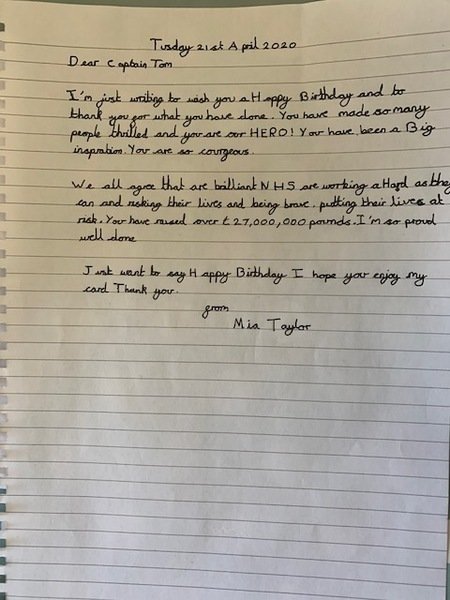 Tusday 21st April 2020
Dear Captain Tom
I'm just writing to wish you a Happy Birthday and to
thank you for what you have done. You have made so many
people thrilled and you are our HERO! You have been a Big
inspration. You are so courgeous.
We all agree that are brilliant NHS are working a Hard as they
can and risking their lives and being brave. putting their lives at
risk. You have raised over £27,000,000 pounds. I'm so proud
well done
Just want to say Happy Birthday I hope you enjoy my
card Thank you.
from
Mia Taylor